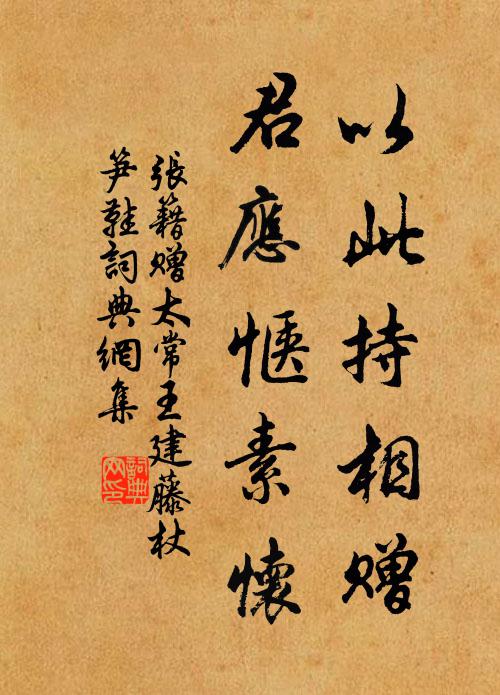 以此持相贈
君應愜素懷
張籍贈太常王建藤杖
笋鞋詞典網集
詞典網印